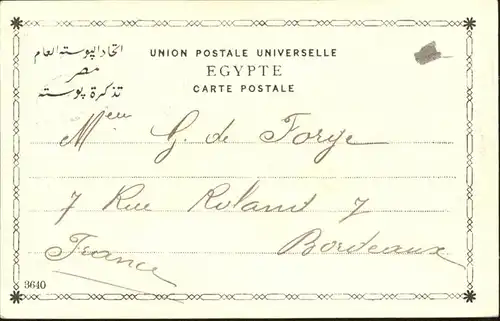 اتحاد البوسته العام
مصر
تذكرة بوسته
UNION POSTALE UNIVERSELLE
EGYPTE
CARTE POSTALE
Meur G. de Forge
7 Rue Roland 7
Bordeaux
France
3640